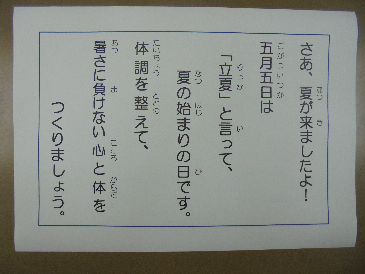 さあ、夏が来ましたよ！
五月五日は
「立夏」と言って、
夏の始まりの日です。
体調を整えて、
暑さに負けない心と体を
つくりましょう。